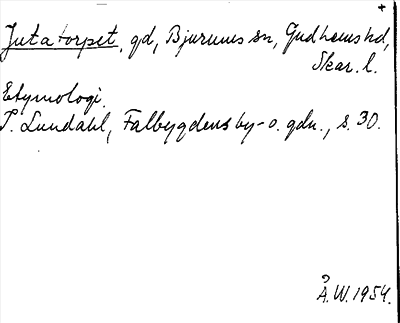 +
Jutatorpet, gd, Bjurums sn, Gudhems hd,
Skar. l.
Etymologi.
I. Lundahl, Falbygdens by- o. gdn., s. 30.
Å.W. 1954.